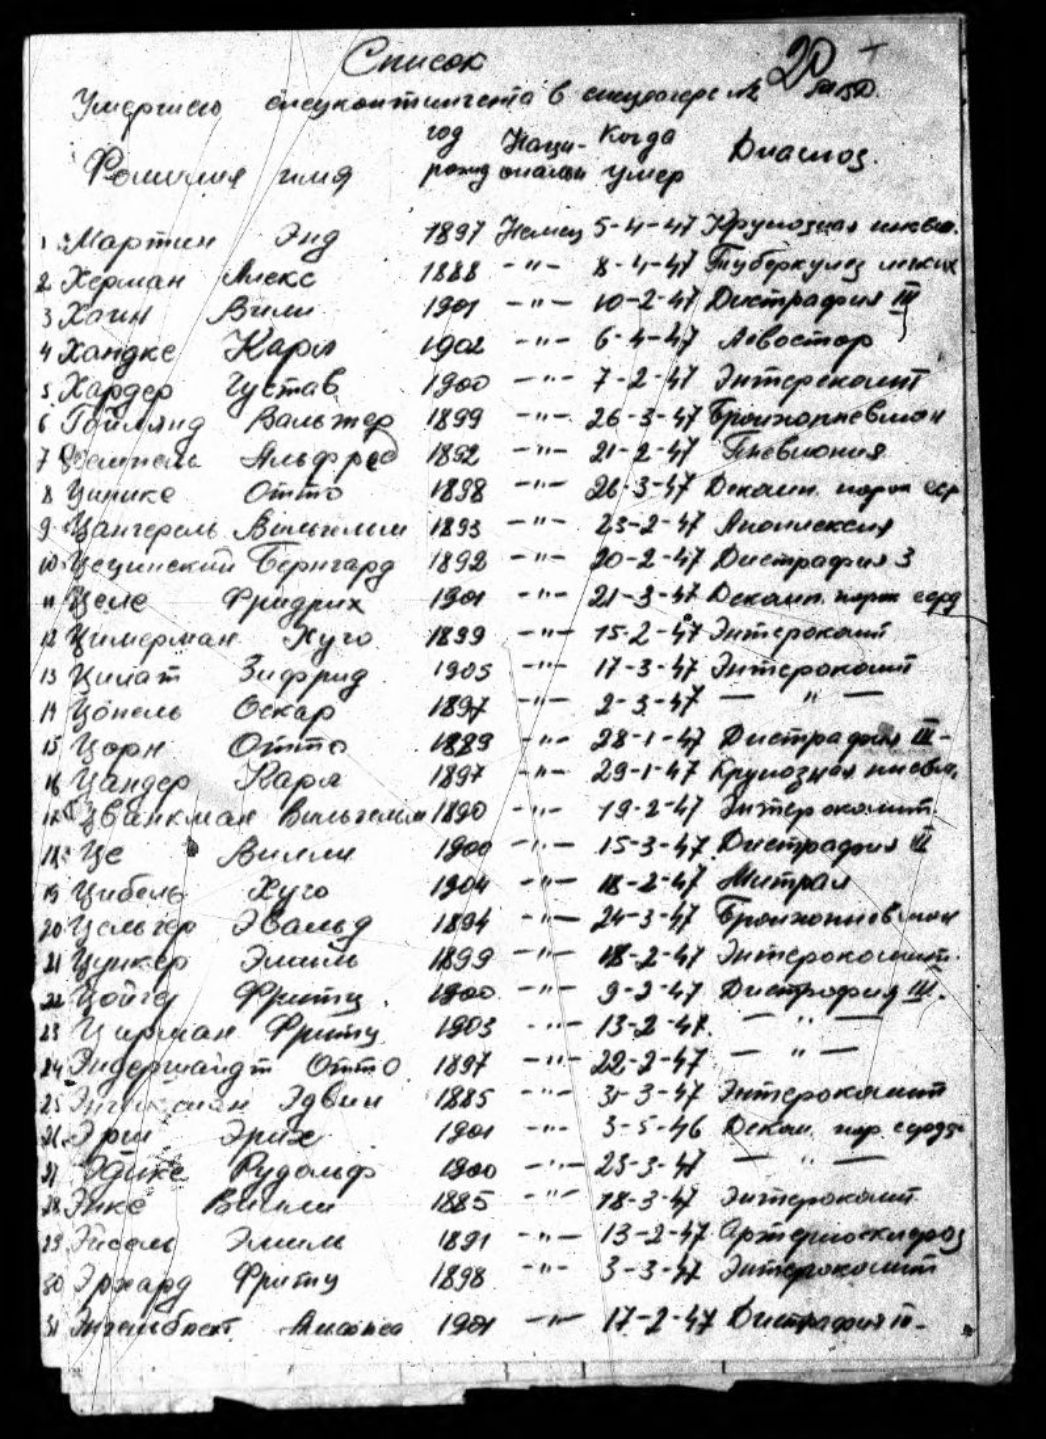 Список 20
Умершего спецконтингента в спецлагере №
год Наци- Когда Диагноз.
Фамилия имя рожд ональн умер
1 Мартин Энд 1897 Немец 5-4-47 Крупозная пневм.
2 Херман Алекс 1888 -"- 8-4-47 Туберкулез легких
3 Хаин Вили 1901 -"- 10-2-47 Дистрафия III
4 Хандке Карл 1902 -"- 6-4-47
5 Хардер Густав 1900 -"- 7-2-47 Энтероколит
6 Вальтер 1899 -"- 26-3-47 Бронхопневмон
7 Альфред 1892 -"- 21-2-47 Пневмония
8 Цинике Отто 1898 -"- 26-3-47 Декомп. порок сер
9 Цангероль Вильгельм 1893 -"- 23-2-47 Апоплексия
10 Цецинский Бернгард 1892 -"- 20-2-47 Дистрафия 3
11 Целе Фридрих 1901 -"- 21-3-47 Декомп. порок серд
12 Цимерман Хуго 1899 -"- 15-2-47 Энтероколит
13 Цилат Зифрид 1905 -"- 17-3-47 Энтероколит
14 Цопель Оскар 1897 -"- 2-3-47 — " —
15 Цорн Отто 1889 -"- 28-1-47 Дистрафия III-
16 Цандер Карл 1897 -"- 29-1-47 Крупозная пневм.
17 Цванкман Вильгельм 1890 -"- 19-2-47 Энтероколит.
18 Це Вилли 1900 -"- 15-3-47 Дистрафия III
19 Цибель Хуго 1904 -"- 18-2-47 Митрал
20 Цельгер Эвальд 1894 -"- 24-3-47 Бронхопневмон
21 Цункер Эмиль 1899 -"- 18-2-47 Энтероколит.
22 Цойге Фритц 1900 -"- 9-2-47 Дистрофия III.
23 Цирман Фритц 1903 -"- 13-2-47. — " —
24 Эндершайдт Отто 1897 -"- 22-2-47 — " —
25 Эдвин 1885 -"- 31-3-47 Энтероколит
26 Эрл Эрих 1901 -"- 3-5-46 Деком. пор. сердз
27 Эдике Рудольф 1900 -"- 23-3-47 — " —
28 Энке Вилли 1885 -"- 18-3-47 Энтероколит
29 Эйсель Эмиль 1891 -"- 13-2-47 Артериосклероз
30 Эрхард Фритц 1898 -"- 3-3-47 Энтероколит
31 Энгельбрехт 1901 -"- 17-2-47 Дистрафия III-